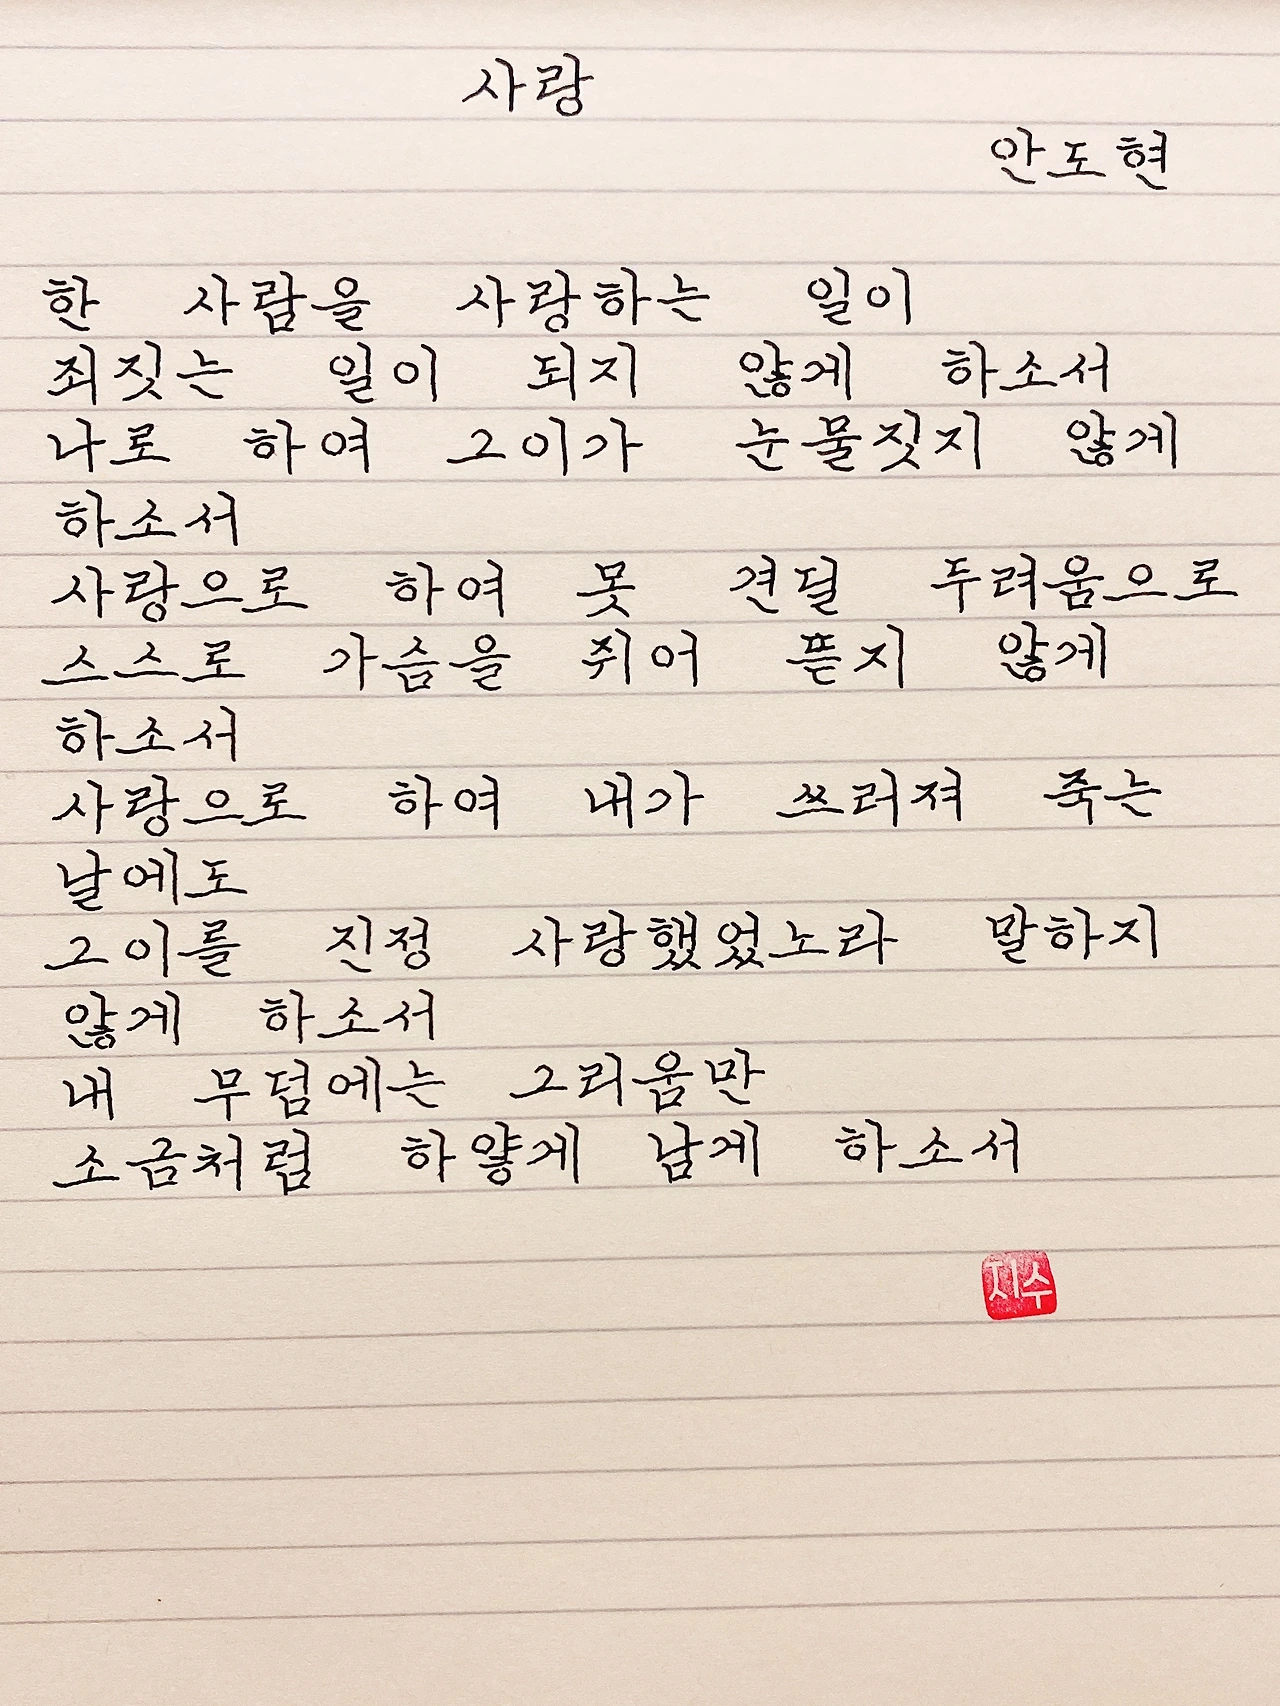 사랑
안도현
한 사람을 사랑하는 일이
죄짓는 일이 되지 않게 하소서
나로 하여 그이가 눈물짓지 않게
하소서
사랑으로 하여 못 견딜 두려움으로
스스로 가슴을 쥐어 뜯지 않게
하소서
사랑으로 하여 내가 쓰러져 죽는
날에도
그이를 진정 사랑했었노라 말하지
않게 하소서
내 무덤에는 그리움만
소금처럼 하얗게 남게 하소서
지수